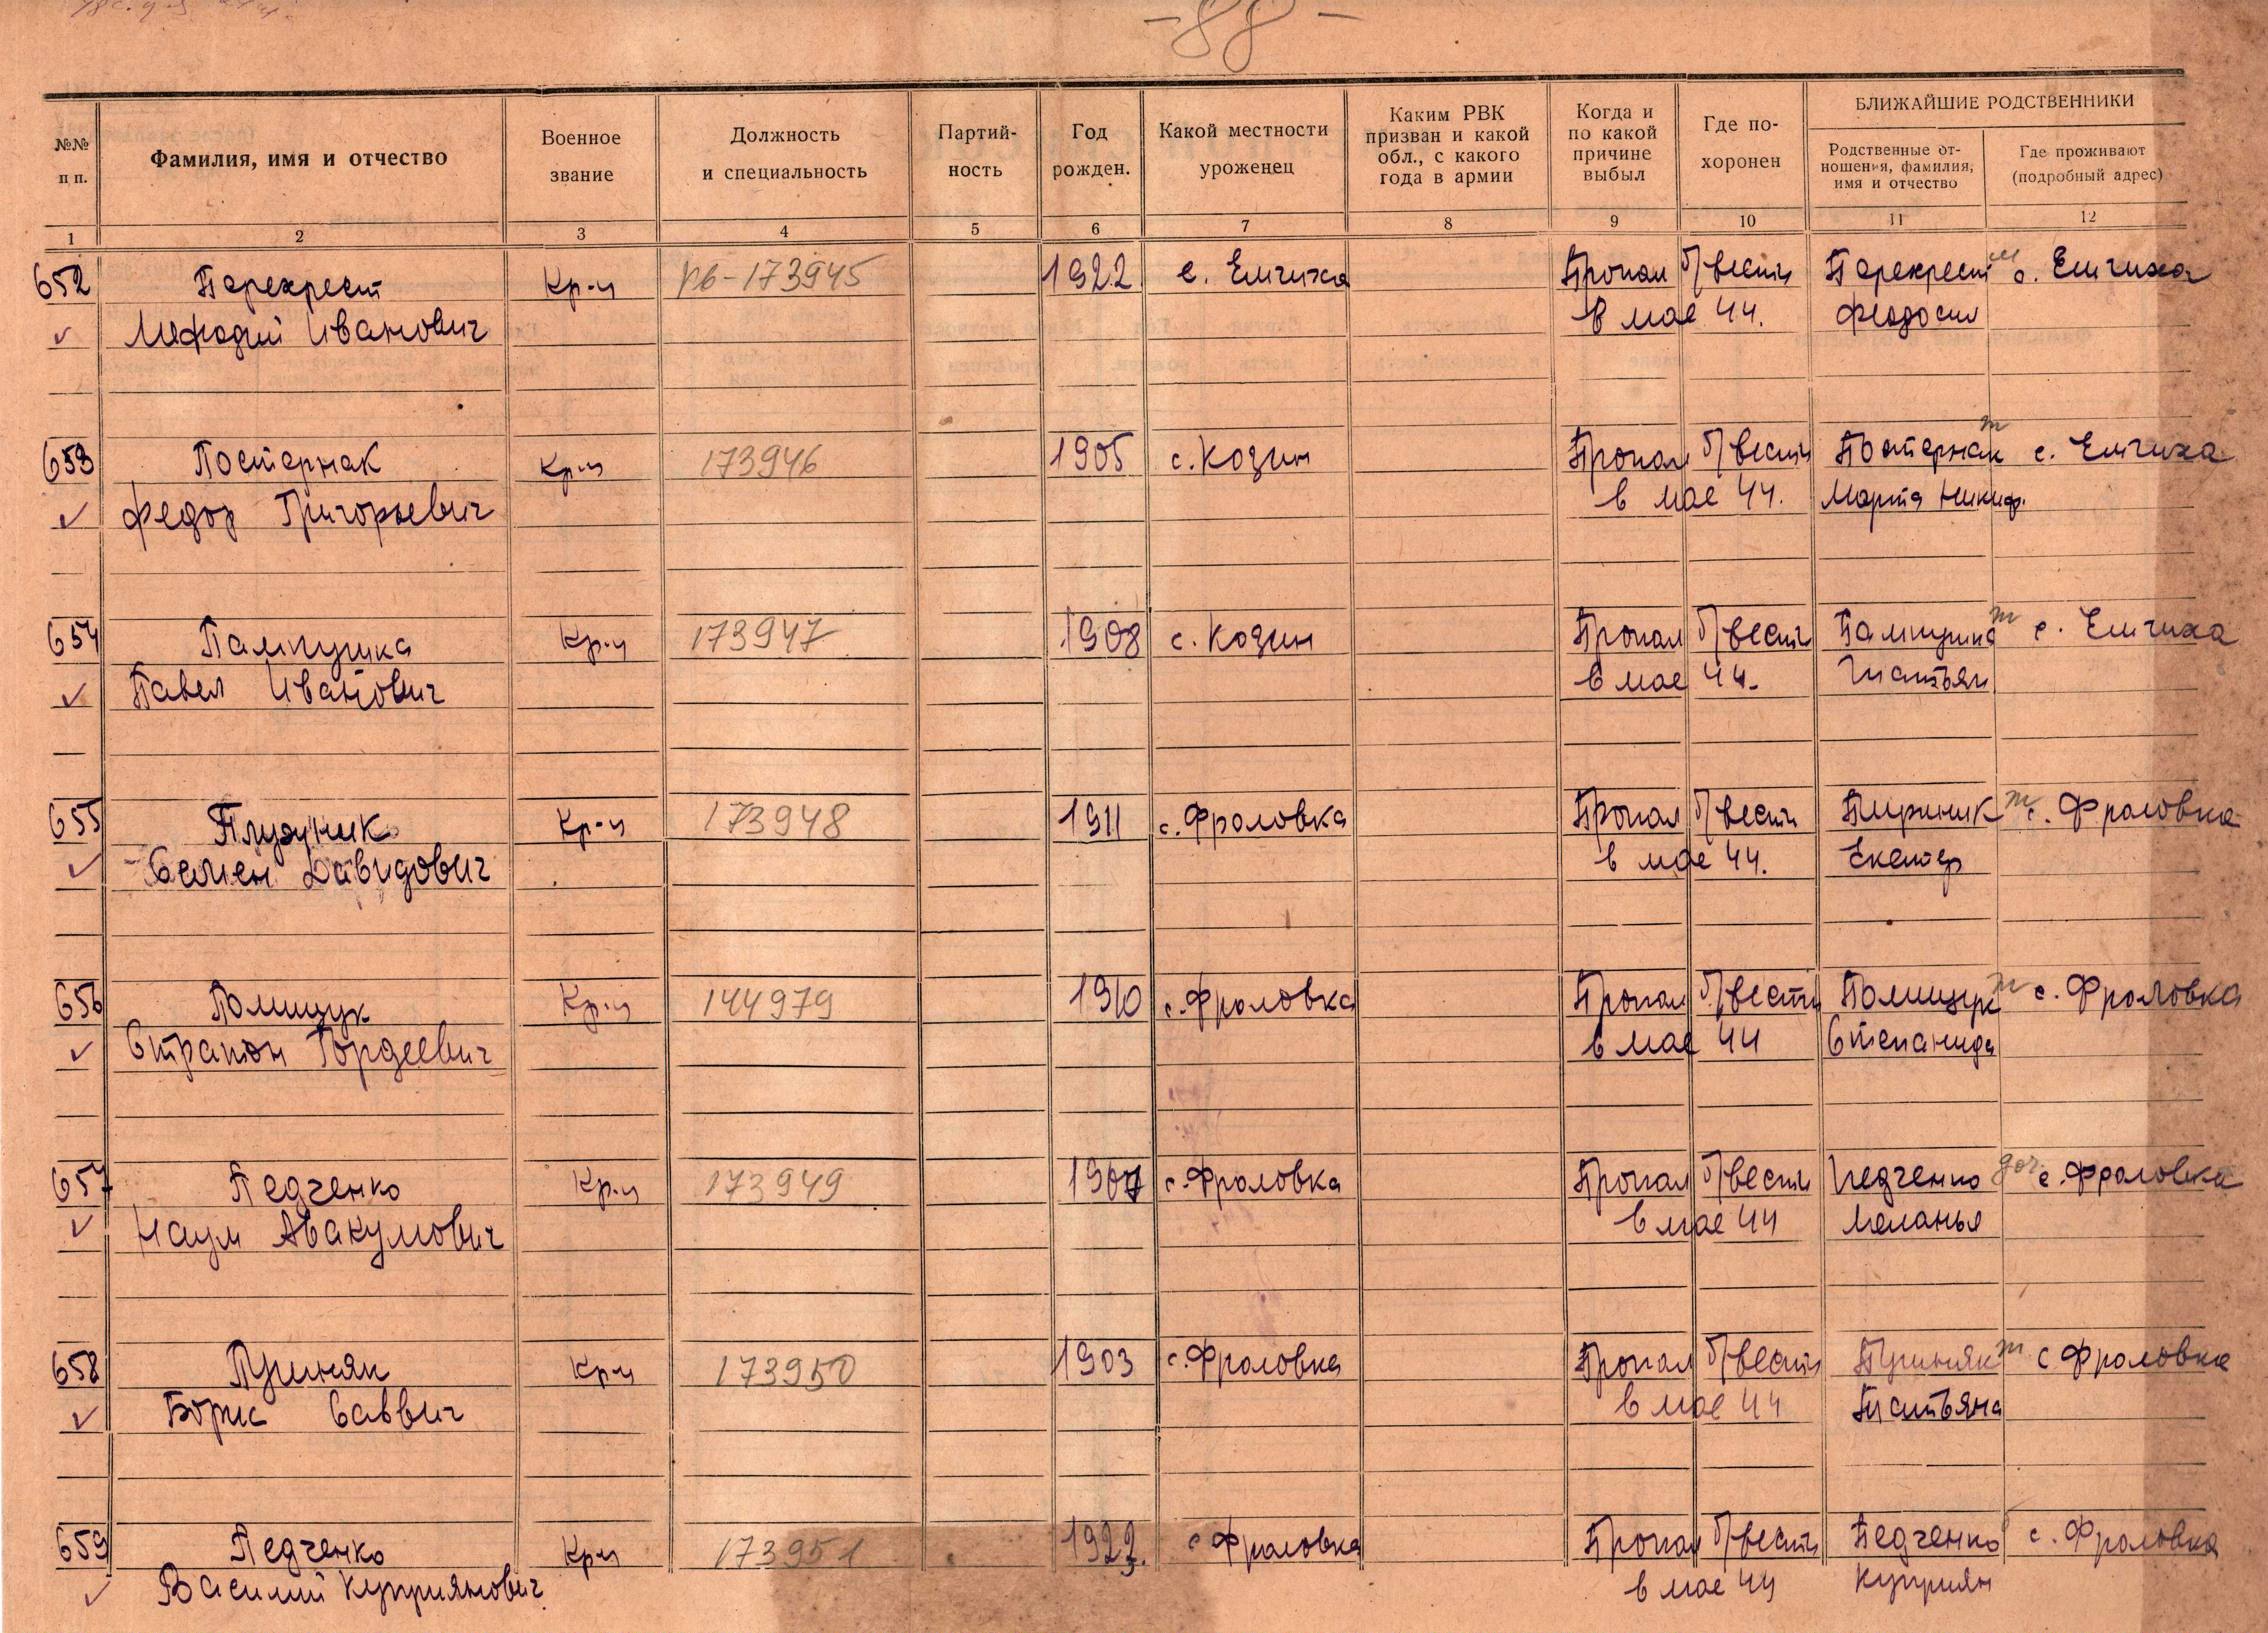 -88-
№№ п п.
Фамилия, имя и отчество
Военное звание
Должность и специальность
Партий-ность
Год рожден.
Какой местности уроженец
Каким РВК призван и какой обл., с какого года в армии
Когда и по какой причине выбыл
Где по-хоронен
БЛИЖАЙШИЕ РОДСТВЕННИКИ
Родственные от-ношения, фамилия, имя и отчество
Где проживают (подробный адрес)
1 2 3 4 5 6 7 8 9 10 11 12
652 Перекрест Кр-ц 173945 1922 с. Емчиха Пропал б/вести Перекрест м с. Емчиха
Мефодий Иванович в мае 44. Феодосия
653 Постернак Кр-ц 173946 1905 с. Козин Пропал б/вести Постернак с. Емчиха
Федор Григорьевич в мае 44. Марта Никиф.
654 Пампушка Кр-ц 173947 1908 с. Козин Пропал б/вести Пампушка с. Емчиха
Павел Иванович в мае 44. Татьян
655 Кр-ц 173948 1911 с. Фроловка Пропал б/вести с. Фроловка
Семен Давидович в мае 44. Екатер
656 Полищук Кр-ц 144979 1910 с. Фроловка Пропал б/вести Полищук с. Фроловка
Страпон Гордеевич в мае 44 Степанида
657 Педченко Кр-ц 173949 1907 с. Фроловка Пропал б/вести Педченко доч. с. Фроловка
Наум Авакумович в мае 44 Меланья
658 Кр-ц 173950 1903 с. Фроловка Пропал б/вести с Фроловка
Борис Саввич в мае 44 Татьяна
659 Педченко Кр-ц 173951 с Фроловка Пропал б/вести Педченко с. Фроловка
Василий Куприянович в мае 44 Куприян